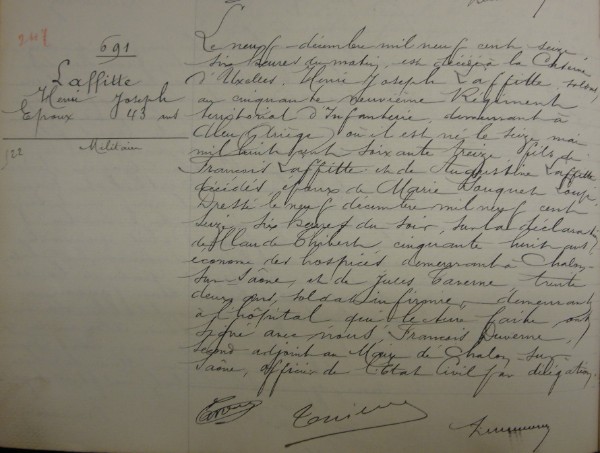 691
Laffitte
Henri Joseph
Epoux 43 ans
Militaire
Le neuf décembre mil neuf cent seize
six heures du matin, est décédé à la Caserne
d'Uxelles, Henri Joseph Laffitte, soldat
au cinquante neuvième Régiment
territorial d'Infanterie, demeurant à
(Ariège) où il est né le seize mai
mil huit cent soixante treize, fils de
Francois Laffitte et de Augustine Laffitte
décédés, époux de Marie Pouquet
Dressé le neuf décembre mil neuf cent
seize, six heures du soir, sur la déclaration
de Claude Thibert, cinquante huit ans
économe des hospices demeurant à Chalon-
sur-Saône, et de Jules Taverne trente
deux ans, soldat infirmier, demeurant
à l'hôpital qui lecture faite ont
signé avec nous Francois Duverne,
second adjoint au Maire de Chalon-sur-
Saône, officier de l'Etat Civil par délégation.